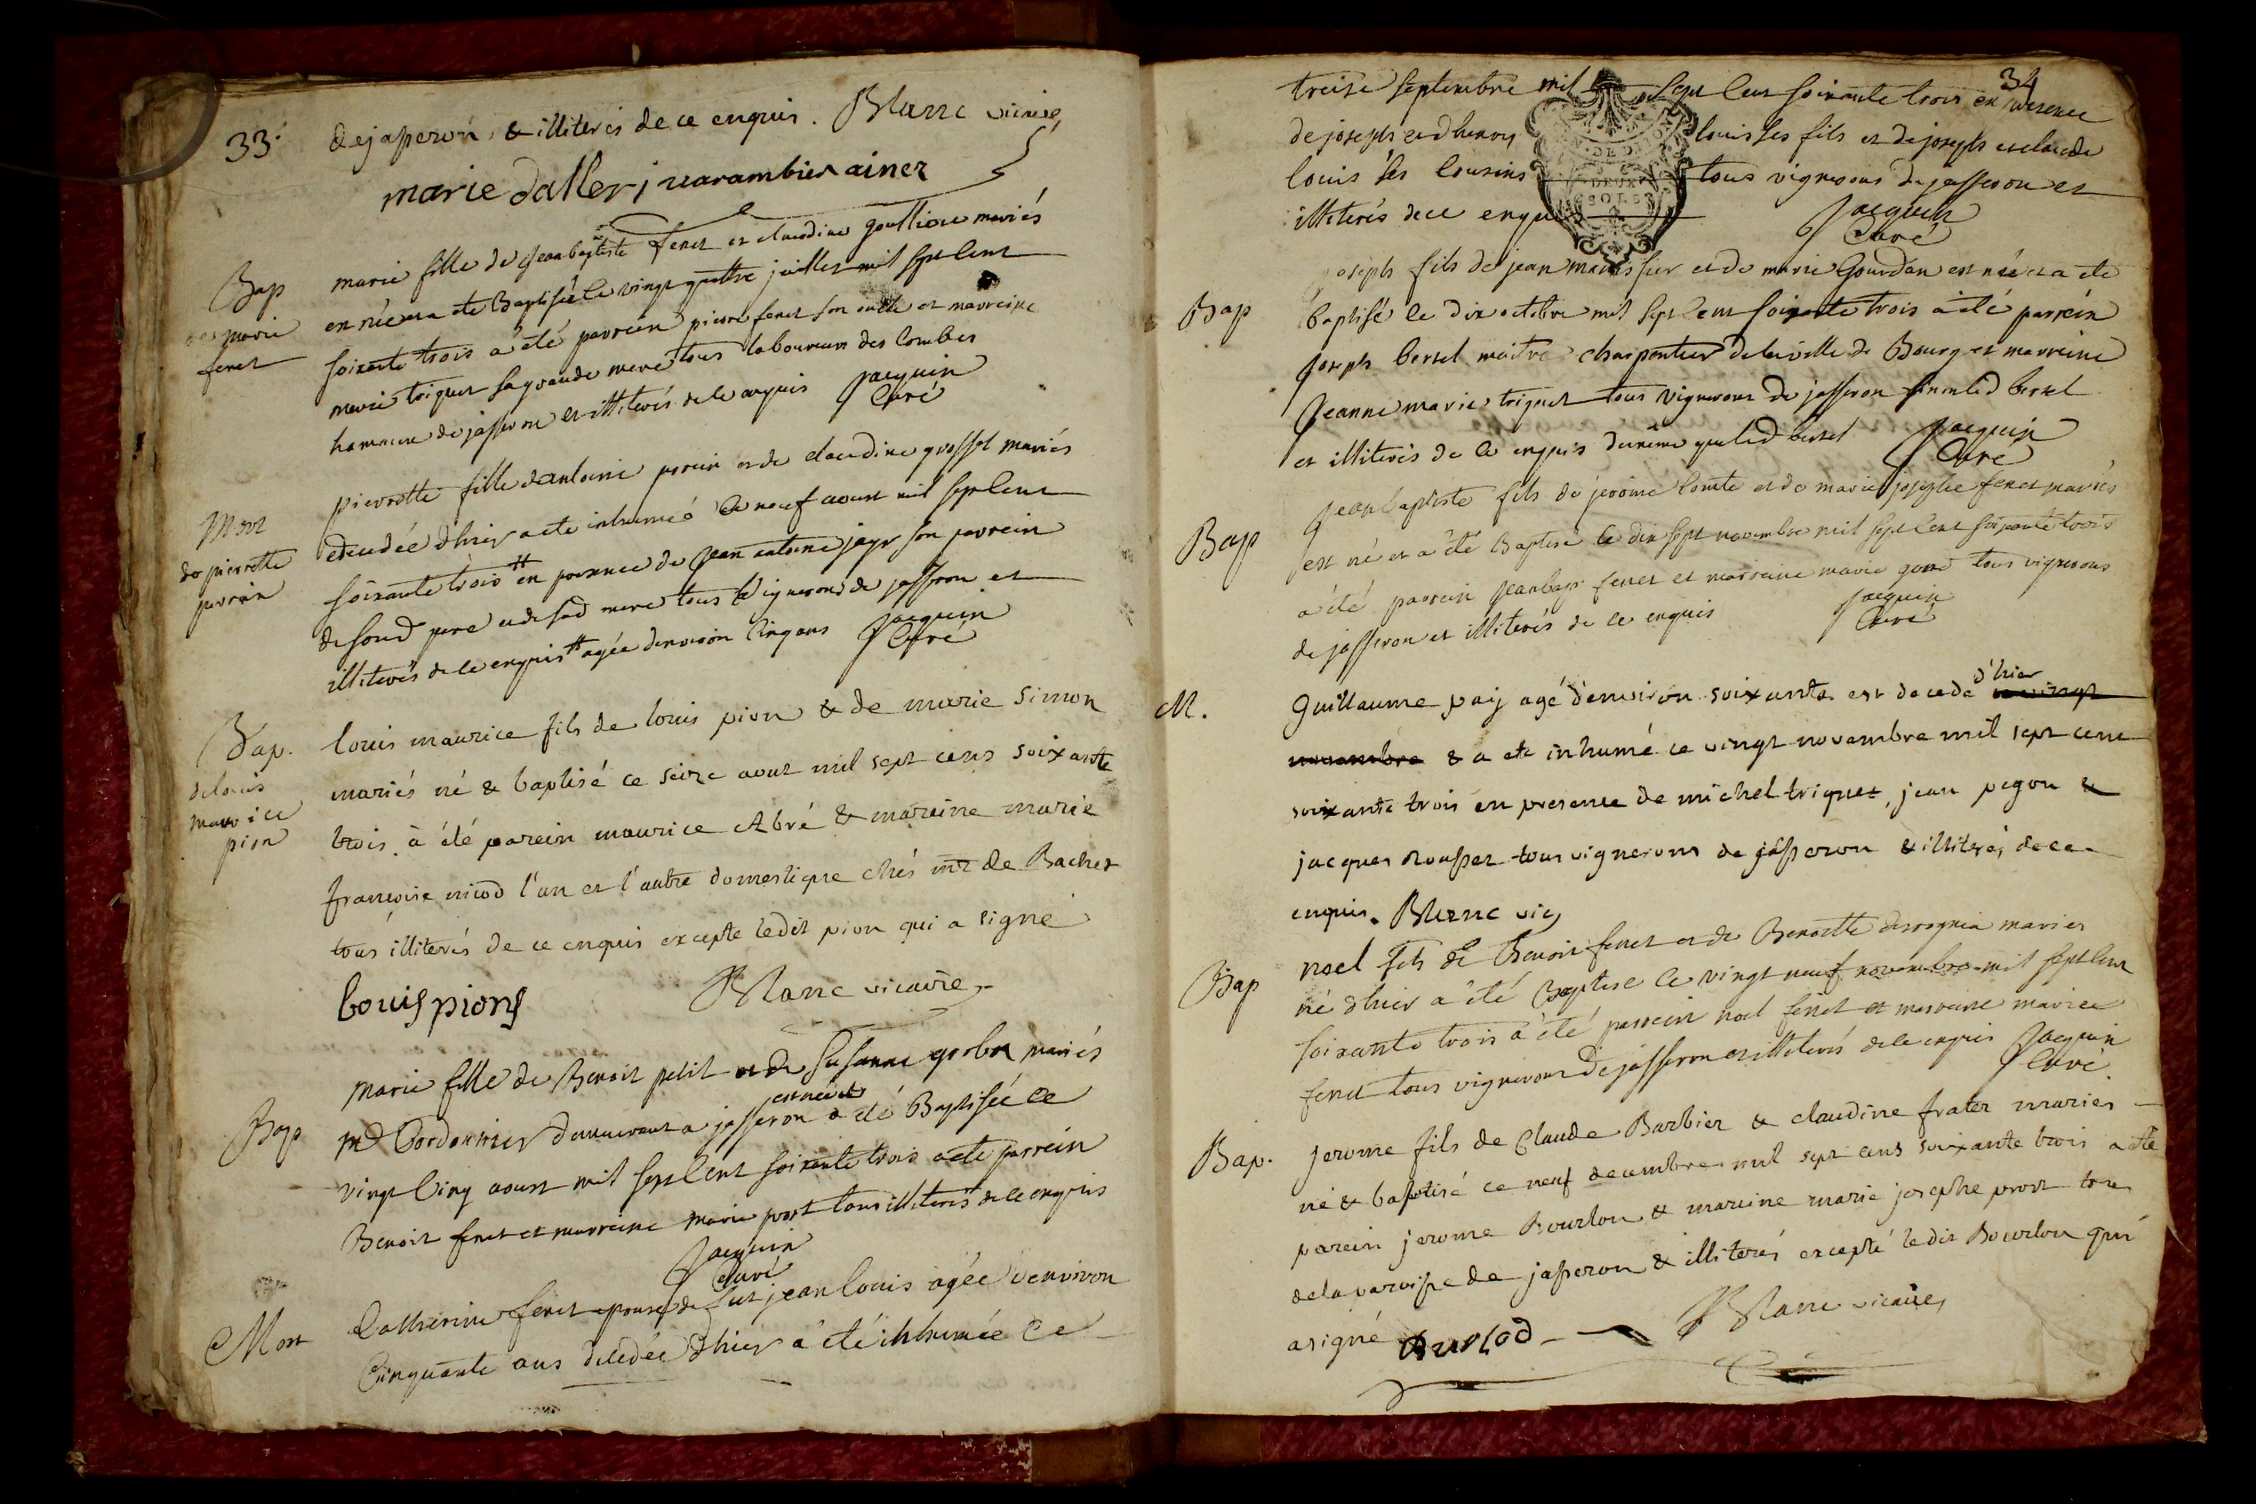 33.
dejasseron, & illiterés de ce enquis. Blanc vicaire
marie dallery varambier ainez
Bap
marie
feret
marie fille de jean baptiste feret et claudine mariés
est née et a ete Baptisée le vingt quattre juillet mil sept cent
soixante trois a été parrein pierre feret son oncle et marreine
marie triquet sa grande mere tous laboureurs des Combes
hammeau de jasseron et illiterés de ce enquis Jacquin
Curé
Mort
de pierrette
perrin
pierrette fille dantoine perrin et de claudine grosset mariés
decedée dhier a ete inhumée le neuf aoust mil sept cent
soixante trois # en presence de Jean antoine jayr son parrein
de soud pere et de sad mere tous vignerons de jasseron et
illiterés de ce enquis # agée denviron Cinq ans Jacquin
Curé
Bap.
de louis
maurice
pion
louis maurice fils de louis pion & de marie Simon
mariés né & baptisé ce seize aout mil sept cens soixante
trois. à été parein maurice Abré & mareine marie
françoise nicod l'un et l'autre domestique chés mr de Bachet
tous illiterés de ce enquis excepté ledit pion qui a signé
louis pion Blanc vicaire
Bap
marie fille de Benoit petit et de Susanne mariés
md Cordonnier demeurant a jasseron est née et a été Baptisée le
vingt Cinq aoust mil sept Cent soixante trois a ete parrein
Benoit feret et marreine marie prost tous illiterés de ce enquis
Jacquin
Curé
Mort
Catherine feret epouse de fut jean louis agée denviron
Cinquante ans decedée dhier a été inhumée le
34
treise septembre mil sept Cent soixante trois en presence
de joseph et dhenry louis ses fils et de joseph et claude
louis ses Cousins tous vignerons de jasseron et
illiterés de ce enquis Jacquin
Curé
Bap
joseph fils de jean et de marie Gourdan est né et a ete
baptisé le dix octobre mil sept Cent soixante trois a été parrein
joseph bertet maitre charpentier de la ville de Bourg et marreine
Jeanne marie triquet tous vignerons de jasseron sinon led bertet
et illiterés de ce enquis de même que led bertet Jacquin
Curé
Bap
Jean baptiste fils de jerôme Comte et de marie josephe feret mariés
est né et a été Baptisé le dix sept novembre mil sept Cent soixante trois
a été parrein jean bap feret et marreine marie tous vignerons
de jasseron et illiterés de ce enquis Jacquin
Curé
M.
Guillaume pay agé denviron soixante est decedé d'hier le vingt
novembre & a ete inhumé ce vingt novembre mil sept cent
soixante trois en presence de michel triquet, jean pegon &
jacques Rousset tous vignerons de jasseron & illiterés de ce
enquis. Blanc vic
Bap
noel fils de Benoit feret et de Benoitte mariés
né dhier a été Baptisé le vingt neuf novembre mil sept Cent
soixante trois a été parrein noel feret et marreine marie
feret tous vignerons de jasseron et illiterés de ce enquis Jacquin
Curé
Bap.
jerome fils de Claude Barbier & claudine frater mariés
né & baptisé ce neuf decembre mil sept cens soixante trois a ete
parein jerome Bourlon & mareine marie josephe prost tous
de la paroisse de jasseron & illiterés excepté ledit Bourlon qui
a signé Blanc vicaire